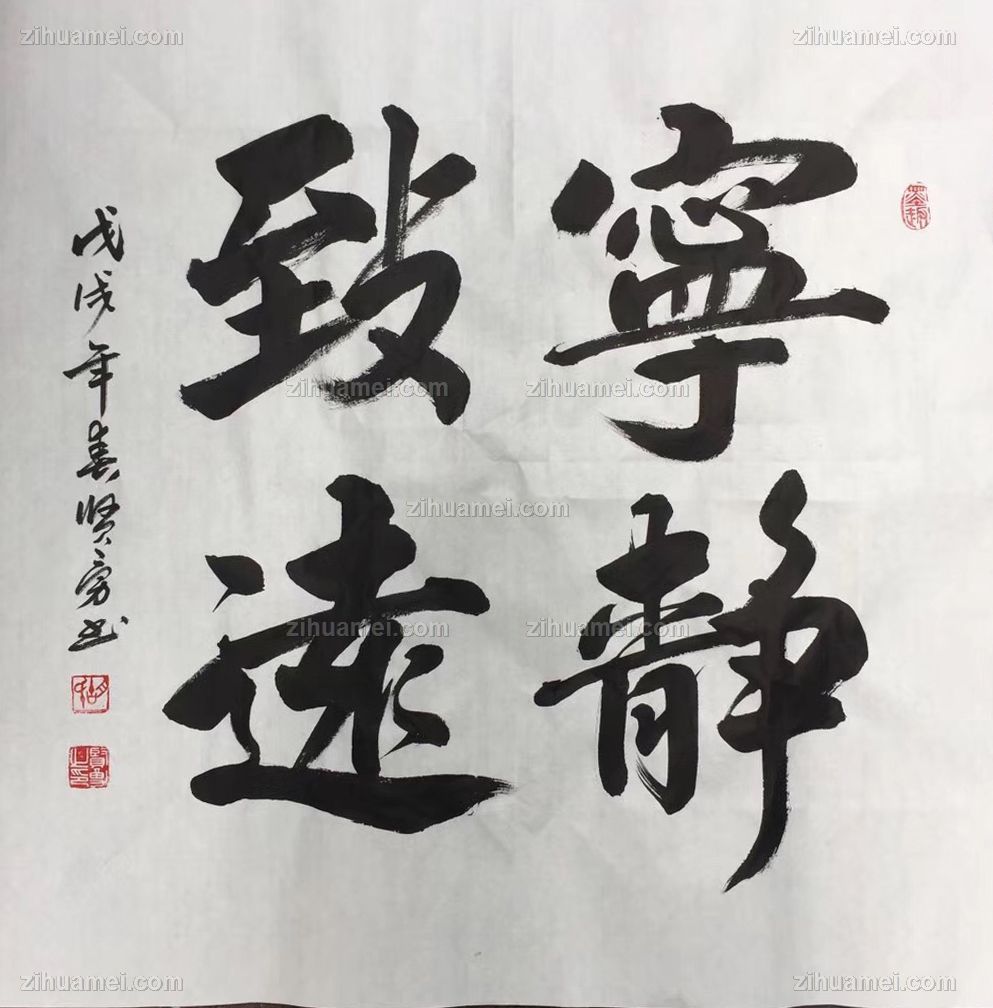 寧靜
致遠
戊戌年春賢勇书
zihuamei.com
zihuamei.com
zihuamei.com
zihuamei.com
zihuamei.com
zihuamei.com
zihuamei.com
zihuamei.com
zihuamei.com